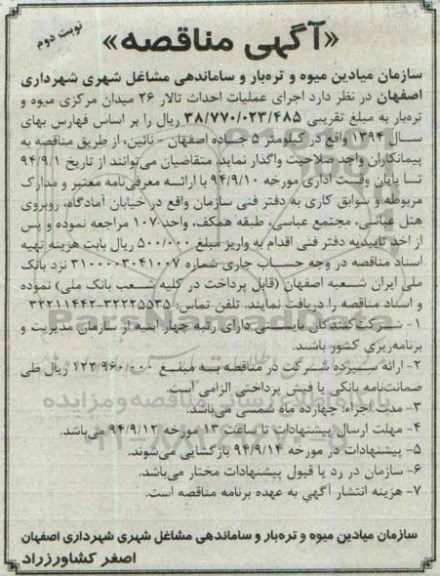 نوبت دوم
«آگهی مناقصه»
سازمان میادین میوه و تره‌بار و ساماندهی مشاغل شهری شهرداری
اصفهان در نظر دارد اجرای عملیات احداث تالار ۲۶ میدان مرکزی میوه و
تره‌بار به مبلغ تقریبی ۳۸/۷۷۰/۰۲۳/۴۸۵ ریال را بر اساس فهارس بهای
سال ۱۳۹۴ واقع در کیلومتر ۵ جاده اصفهان - نائین، از طریق مناقصه به
پیمانکاران واجد صلاحیت واگذار نماید. متقاضیان می‌توانند از تاریخ ۹۴/۹/۱
تا پایان وقت اداری مورخه ۹۴/۹/۱۰ با ارائه معرفی‌نامه معتبر و مدارک
مربوطه و سوابق کاری به دفتر فنی سازمان واقع در خیابان آمادگاه، روبروی
هتل عباسی، مجتمع عباسی، طبقه همکف، واحد ۱۰۷ مراجعه نموده و پس
از اخذ تاییدیه دفتر فنی اقدام به واریز مبلغ ۵۰۰/۰۰۰ ریال بابت هزینه تهیه
اسناد مناقصه در وجه حساب جاری شماره ۳۱۰۰۰۰۳۰۴۱۰۰۷ نزد بانک
ملی ایران شعبه اصفهان (قابل پرداخت در کلیه شعب بانک ملی) نموده
و اسناد مناقصه را دریافت نمایند. تلفن تماس: ۳۲۲۲۵۵۳۵-۳۲۲۱۱۴۴۲
۱- شرکت‌کنندگان بایستی دارای رتبه چهار ابنیه از سازمان مدیریت و
برنامه‌ریزی کشور باشند.
۲- ارائه سپرده شرکت در مناقصه به مبلغ ۴۲۳/۹۶۰/۰۰۰ ریال طی
ضمانت‌نامه بانکی یا فیش پرداختی الزامی است.
۳- مدت اجراء: چهارده ماه شمسی می‌باشد.
۴- مهلت ارسال پیشنهادات تا ساعت ۱۳ مورخه ۹۴/۹/۱۲ می‌باشد.
۵- پیشنهادات در مورخه ۹۴/۹/۱۴ بازگشایی می‌شوند.
۶- سازمان در رد یا قبول پیشنهادات مختار می‌باشد.
۷- هزینه انتشار آگهی به عهده برنامه مناقصه است.
سازمان میادین میوه و تره‌بار و ساماندهی مشاغل شهری شهرداری اصفهان
اصغر کشاورزراد
ParsNamadData
پایگاه اطلاع رسانی مناقصه و مزایده